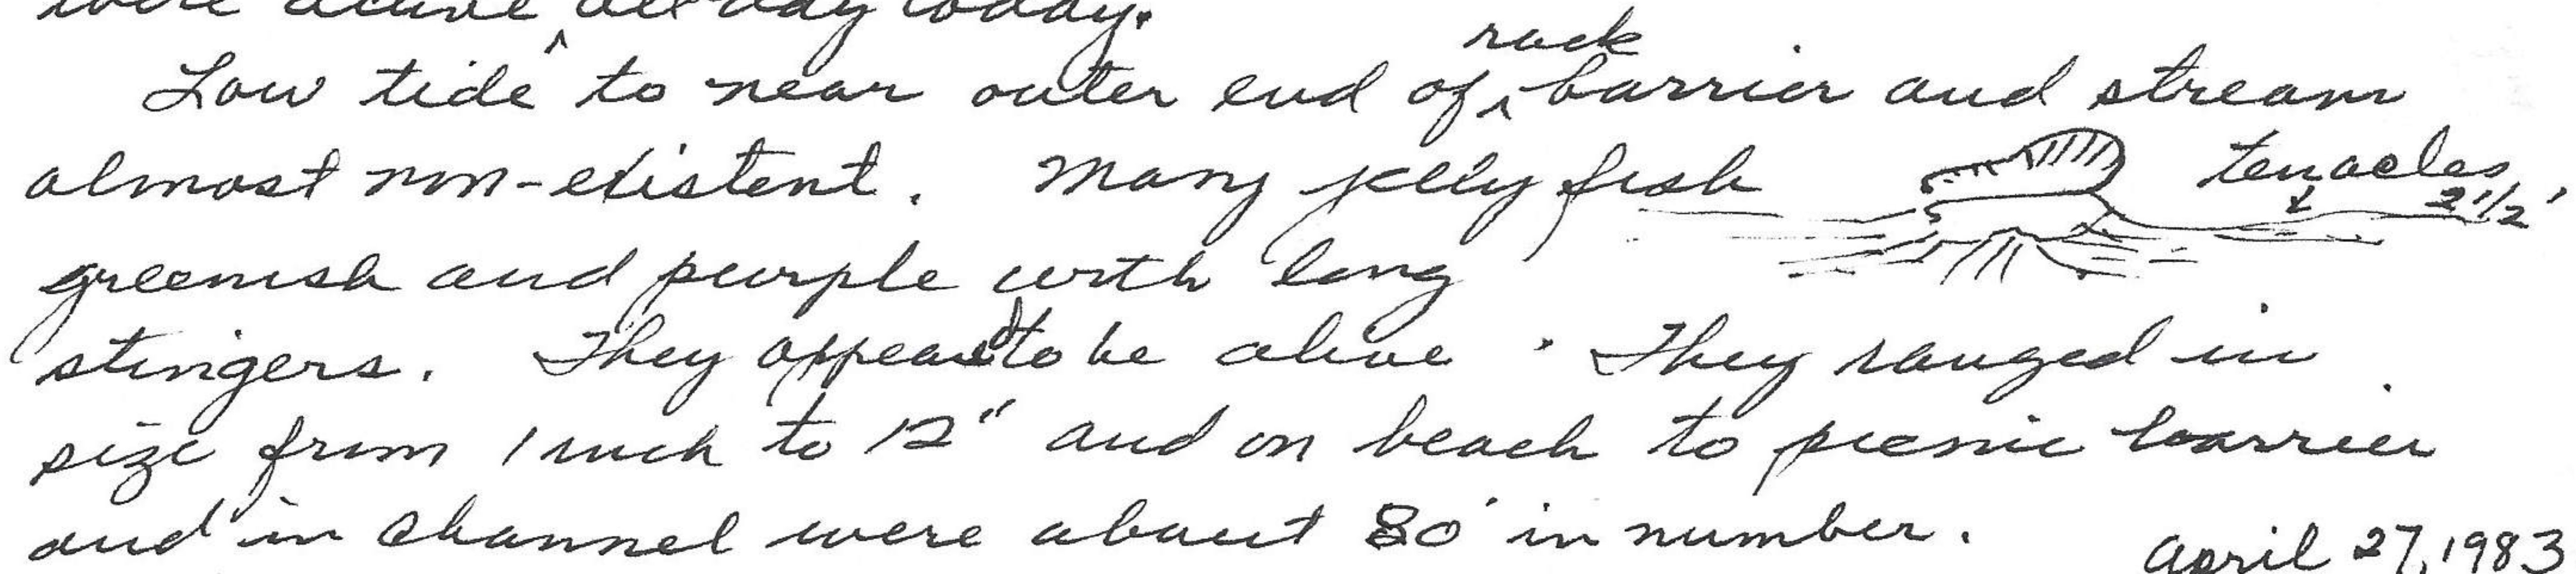 were active all day today.
Low tide to near outer end of rock barrier and stream
almost non-existent. Many jelly fish tenacles 2 1/2'
greenish and purple with long
stingers. They appeared to be alive. They ranged in
size from 1 inch to 12" and on beach to picnic barrier
and in channel were about 80 in number. April 27, 1983